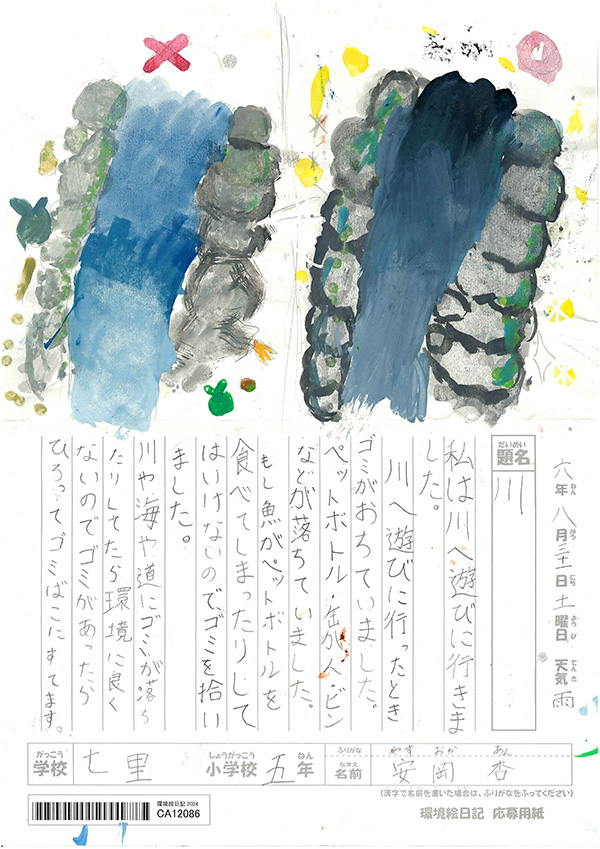 六年八月三十一日土曜日 天気 雨
ねん がつ にち ようび てんき
だいめい
題名
川
私は川へ遊びに行きま
した。
川へ遊びに行ったとき
ゴミがおちていました。
ペットボトル・缶がん・ビン
などが落ちていました。
もし魚がペットボトルを
食べてしまったりして
はいけないので、ゴミを拾い
ました。
川や海や道にゴミが落ち
たりしてたら環境に良く
ないのでゴミがあったら
ひろってゴミばこにすてます。
がっこう しょうがっこう ねん ふりがな やす おか あん
学校 七里 小学校 五年 なまえ 名前 安岡 杏
(漢字で名前を書いた場合は、ふりがなをふってください)
環境絵日記 2024
CA12086
環境絵日記 応募用紙